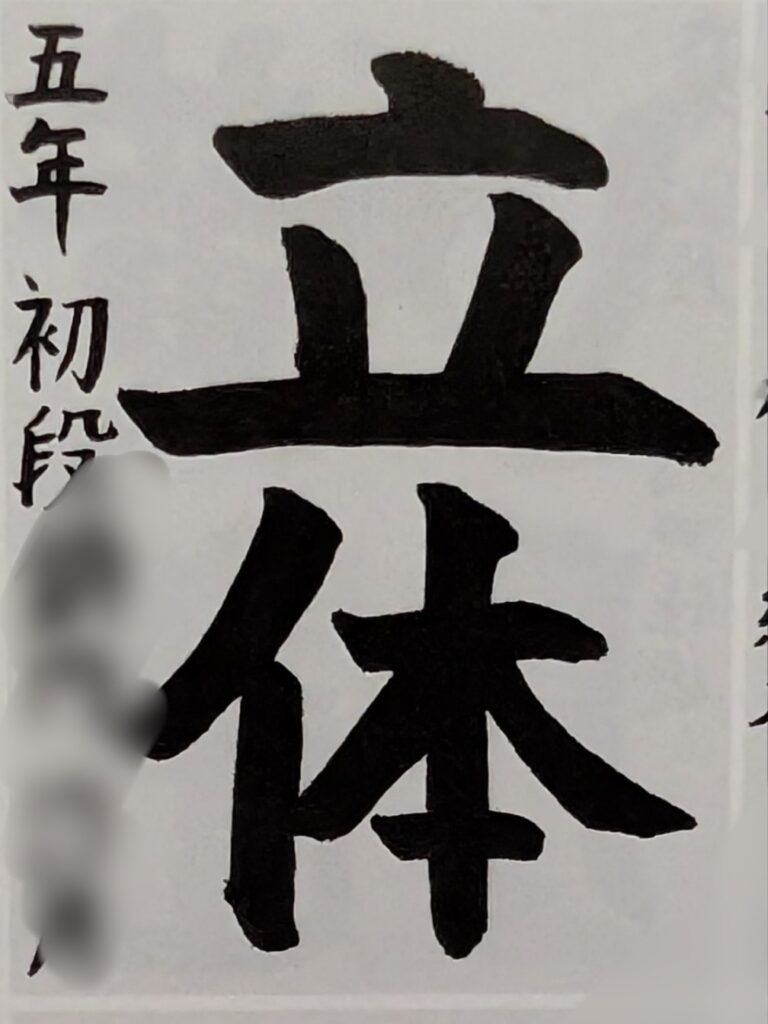 立体
五年 初段